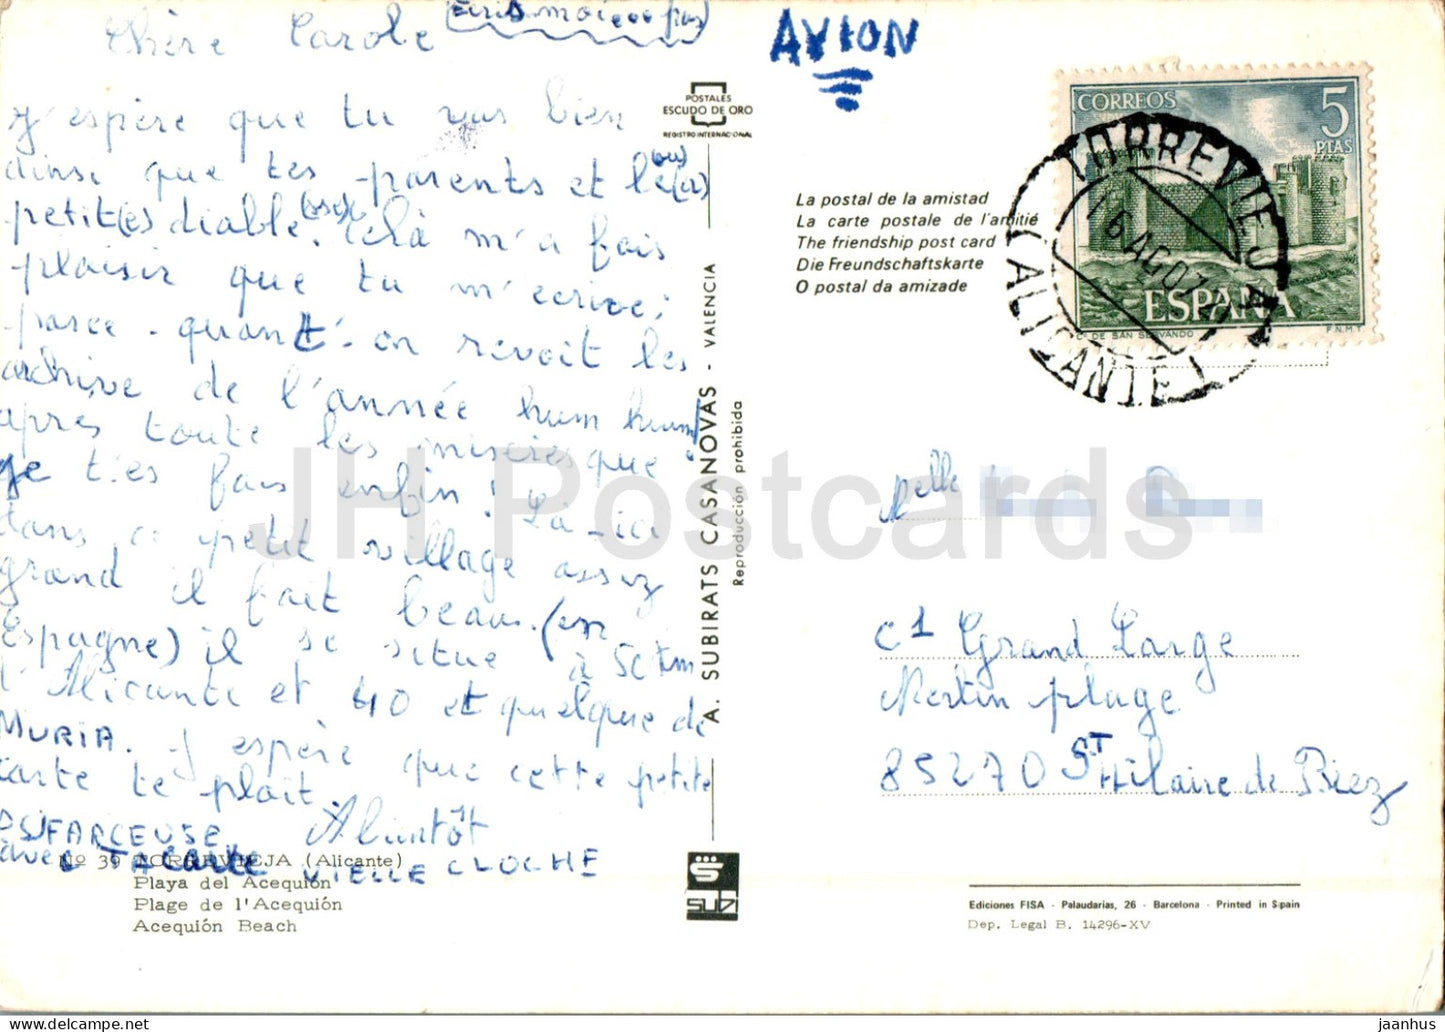 Chère Carole (Ecris moi... )
J'espère que tu vas bien
ainsi que tes parents et le(ou)(es)
petit(e)s diable(sse). Celà m'a fais
plaisir que tu m'ecrive;
parce - quant - on revoit les
archive de l'année hum hum!
après toute les misères que
je t'es fais enfin! Là - ici
dans ce petit village assez
grand il fait beau. (en
Espagne) il se situe à 50 km
d'Alicante et 40 et quelque de
MURIA. J'espère que cette petite
carte te plait.
Abientôt
PS) FARCEUSE
avec TA CARTE VIELLE CLOCHE
Nº 39 TORREVIEJA (Alicante)
Playa del Acequión
Plage de l'Acequión
Acequión Beach
POSTALES
ESCUDO DE ORO
REGISTRO INTERNACIONAL
A. SUBIRATS CASANOVAS - VALENCIA
Reproducción prohibida
SUBI
AVION
La postal de la amistad
La carte postale de l'amitié
The friendship post card
Die Freundschaftskarte
O postal da amizade
CORREOS 5
PTAS
ESPAÑA
Cº DE SAN SERVANDO F.N.M.T.
TORREVIEJA
16 AGO
(ALICANTE)
Melle
c1 Grand Large
Merlin plage
85270 ST Hilaire de Riez
Ediciones FISA - Palaudarias, 26 - Barcelona - Printed in Spain
Dep. Legal B. 14296-XV
JH Postcards
jaanhus @ delcampe.net